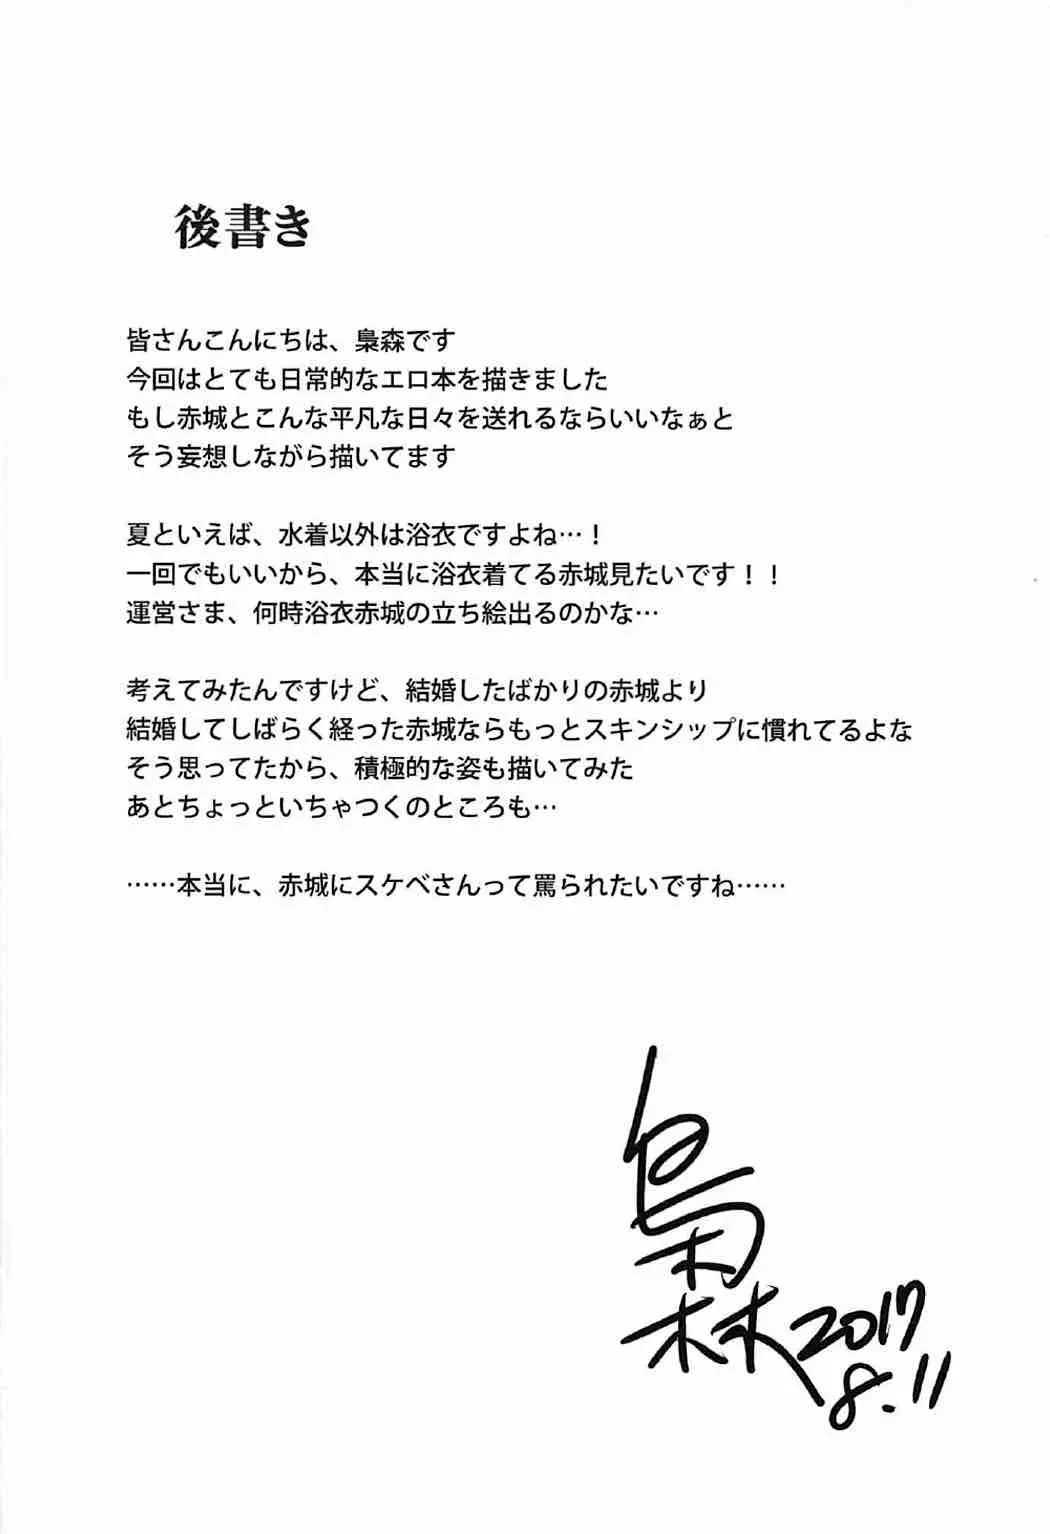 後書き
皆さんこんにちは、梟森です
今回はとても日常的なエロ本を描きました
もし赤城とこんな平凡な日々を送れるならいいなぁと
そう妄想しながら描いてます
夏といえば、水着以外は浴衣ですよね…！
一回でもいいから、本当に浴衣着てる赤城見たいです！！
運営さま、何時浴衣赤城の立ち絵出るのかな…
考えてみたんですけど、結婚したばかりの赤城より
結婚してしばらく経った赤城ならもっとスキンシップに慣れてるよな
そう思ってたから、積極的な姿も描いてみた
あとちょっといちゃつくのところも…
……本当に、赤城にスケベさんって罵られたいですね……
梟森
2017
8.11